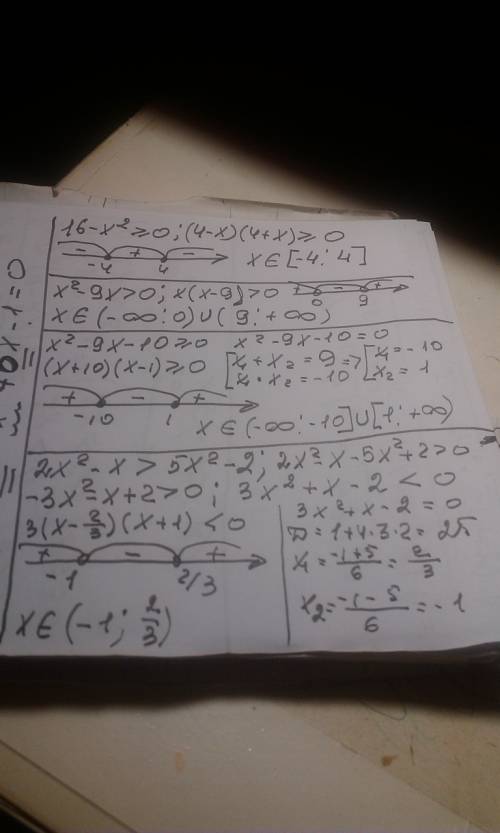 16-x²≥0; (4-x)(4+x)≥0
- + -
-4 4
x∈[-4; 4]
x²-9x>0; x(x-9)>0
+ - +
0 9
x∈(-∞; 0)∪(9; +∞)
x²-9x-10≥0 x²-9x-10=0
(x+10)(x-1)≥0 [x₁+x₂=9 => [x₁=-10
x₁·x₂=-10 x₂=1
+ - +
-10 1
x∈(-∞; -10]∪[1; +∞)
2x²-x>5x²-2; 2x²-x-5x²+2>0
-3x²-x+2>0; 3x²+x-2<0
3(x-2/3)(x+1)<0
+ - +
-1 2/3
x∈(-1; 2/3)
3x²+x-2=0
D=1+4·3·2=25
x₁=(-1+5)/6=2/3
x₂=(-1-5)/6=-1
x-1=0